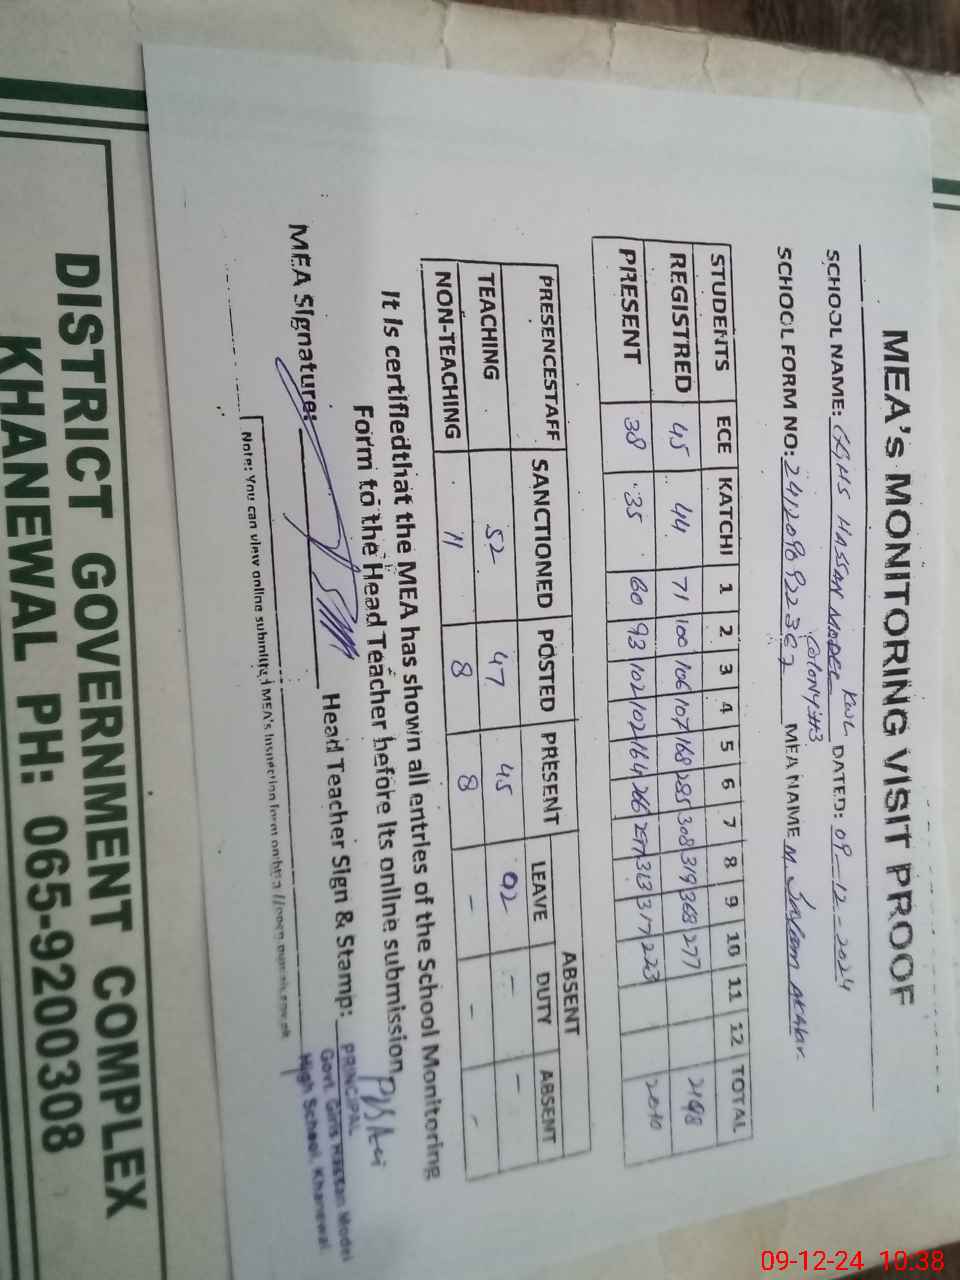 MEA's MONITORING VISIT PROOF
SCHOOL NAME: GGHS HASSAN MODEL KWL DATED: 09-12-2024
COLONY #3
SCHOOL FORM NO: 2412096922367 MEA NAME M. AKbar.
STUDENTS ECE KATCHI 1 2 3 4 5 6 7 8 9 10 11 12 TOTAL
REGISTRED 45 44 71 100 106 107 168 285 308 319 368 277 2198
PRESENT 38 35 60 93 102 102 164 266 297 313 317 223 2010
ABSENT
PRESENCESTAFF SANCTIONED POSTED PRESENT LEAVE DUTY ABSENT
TEACHING 52 47 45 02 - -
NON-TEACHING 11 8 8 - - -
It is certifiedthat the MEA has shown all entries of the School Monitoring
Form to the Head Teacher before its online submission.
MEA Signature: Head Teacher Sign & Stamp:
PRINCIPAL
Govt. Girls Hassan Model
High School, Khanewal
Note: You can view online submitted MEA's Inspection form on
DISTRICT GOVERNMENT COMPLEX
KHANEWAL PH: 065-9200308
09-12-24 10:38